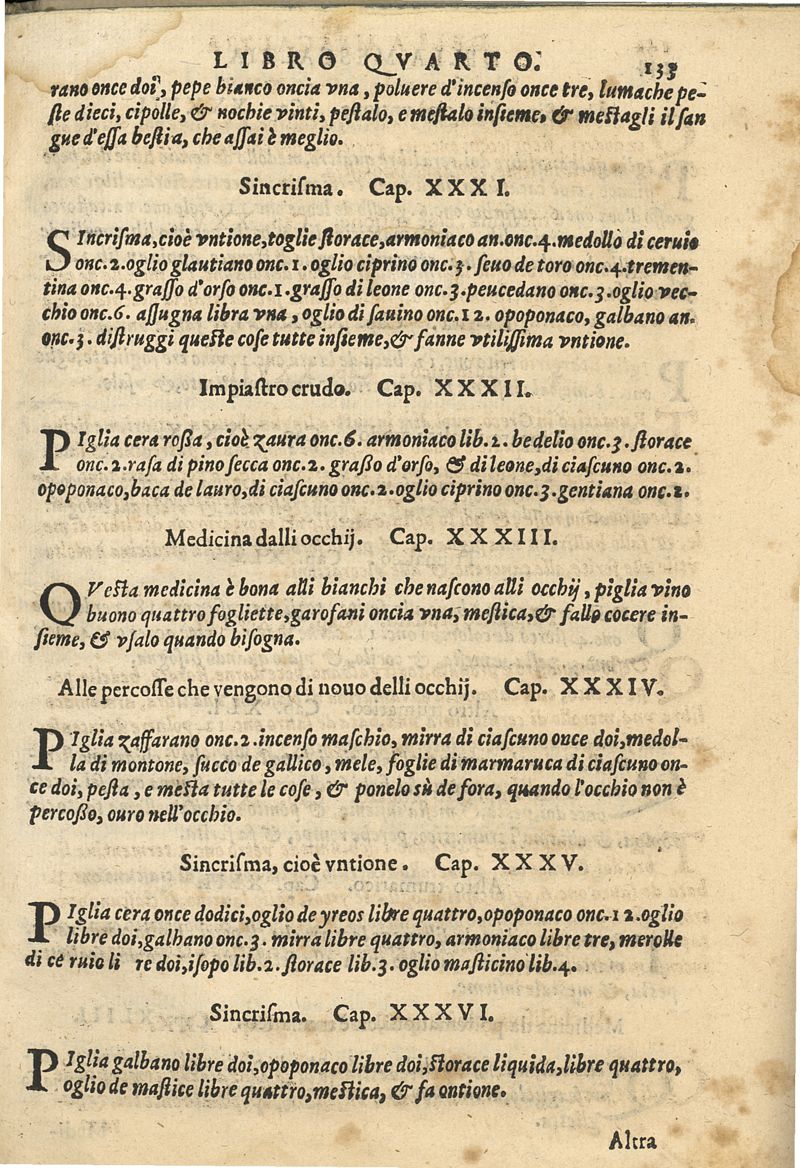 LIBRO QVARTO. 133
rano once doi, pepe bianco oncia vna, poluere d'incenso once tre, lumache pe-
ſte dieci, cipolle, & nochie vinti, peſtalo, e meſtalo inſieme, & meſtagli il ſan
gue d'eſſa beſtia, che aſſai è meglio.
Sincriſma. Cap. XXXI.
SIncriſma, cioè vntione, toglie ſtorace, armoniaco an. onc. 4. medollo di ceruio
onc. 2. oglio glautiano onc. 1. oglio ciprino onc. 3. ſeuo de toro onc. 4. tremen-
tina onc. 4. graſſo d'orſo onc. 1. graſſo di leone onc. 3. peucedano onc. 3. oglio vec-
chio onc. 6. aſſugna libra vna, oglio di ſauino onc. 12. opoponaco, galbano an.
onc. 3. diſtruggi queſte coſe tutte inſieme, & fanne vtiliſſima vntione.
Impiaſtro crudo. Cap. XXXII.
PIglia cera roßa, cioè zaura onc. 6. armoniaco lib. 2. bedelio onc. 3. ſtorace
onc. 2. raſa di pino ſecca onc. 2. graßo d'orſo, & di leone, di ciaſcuno onc. 2.
opoponaco, baca de lauro, di ciaſcuno onc. 2. oglio ciprino onc. 3. gentiana onc. 2.
Medicina dalli occhij. Cap. XXXIII.
QVeſta medicina è bona alli bianchi che naſcono alli occhij, piglia vino
buono quattro fogliette, garofani oncia vna, meſtica, & fallo cocere in-
ſieme, & vſalo quando biſogna.
Alle percoſſe che vengono di nouo delli occhij. Cap. XXXIV.
PIglia zaffarano onc. 2. incenſo maſchio, mirra di ciaſcuno once doi, medol-
la di montone, ſucco de gallico, mele, foglie di marmaruca di ciaſcuno on-
ce doi, peſta, e meſta tutte le coſe, & ponelo sù de fora, quando l'occhio non è
percoßo, ouro nell'occhio.
Sincriſma, cioè vntione. Cap. XXXV.
PIglia cera once dodici, oglio de yreos libre quattro, opoponaco onc. 12. oglio
libre doi, galbano onc. 3. mirra libre quattro, armoniaco libre tre, merolle
di ce ruio li re doi, iſopo lib. 2. ſtorace lib. 3. oglio maſticino lib. 4.
Sincriſma. Cap. XXXVI.
PIglia galbano libre doi, opoponaco libre doi, ſtorace liquida, libre quattro,
oglio de maſtice libre quattro, meſtica, & fa ontione.
Altra